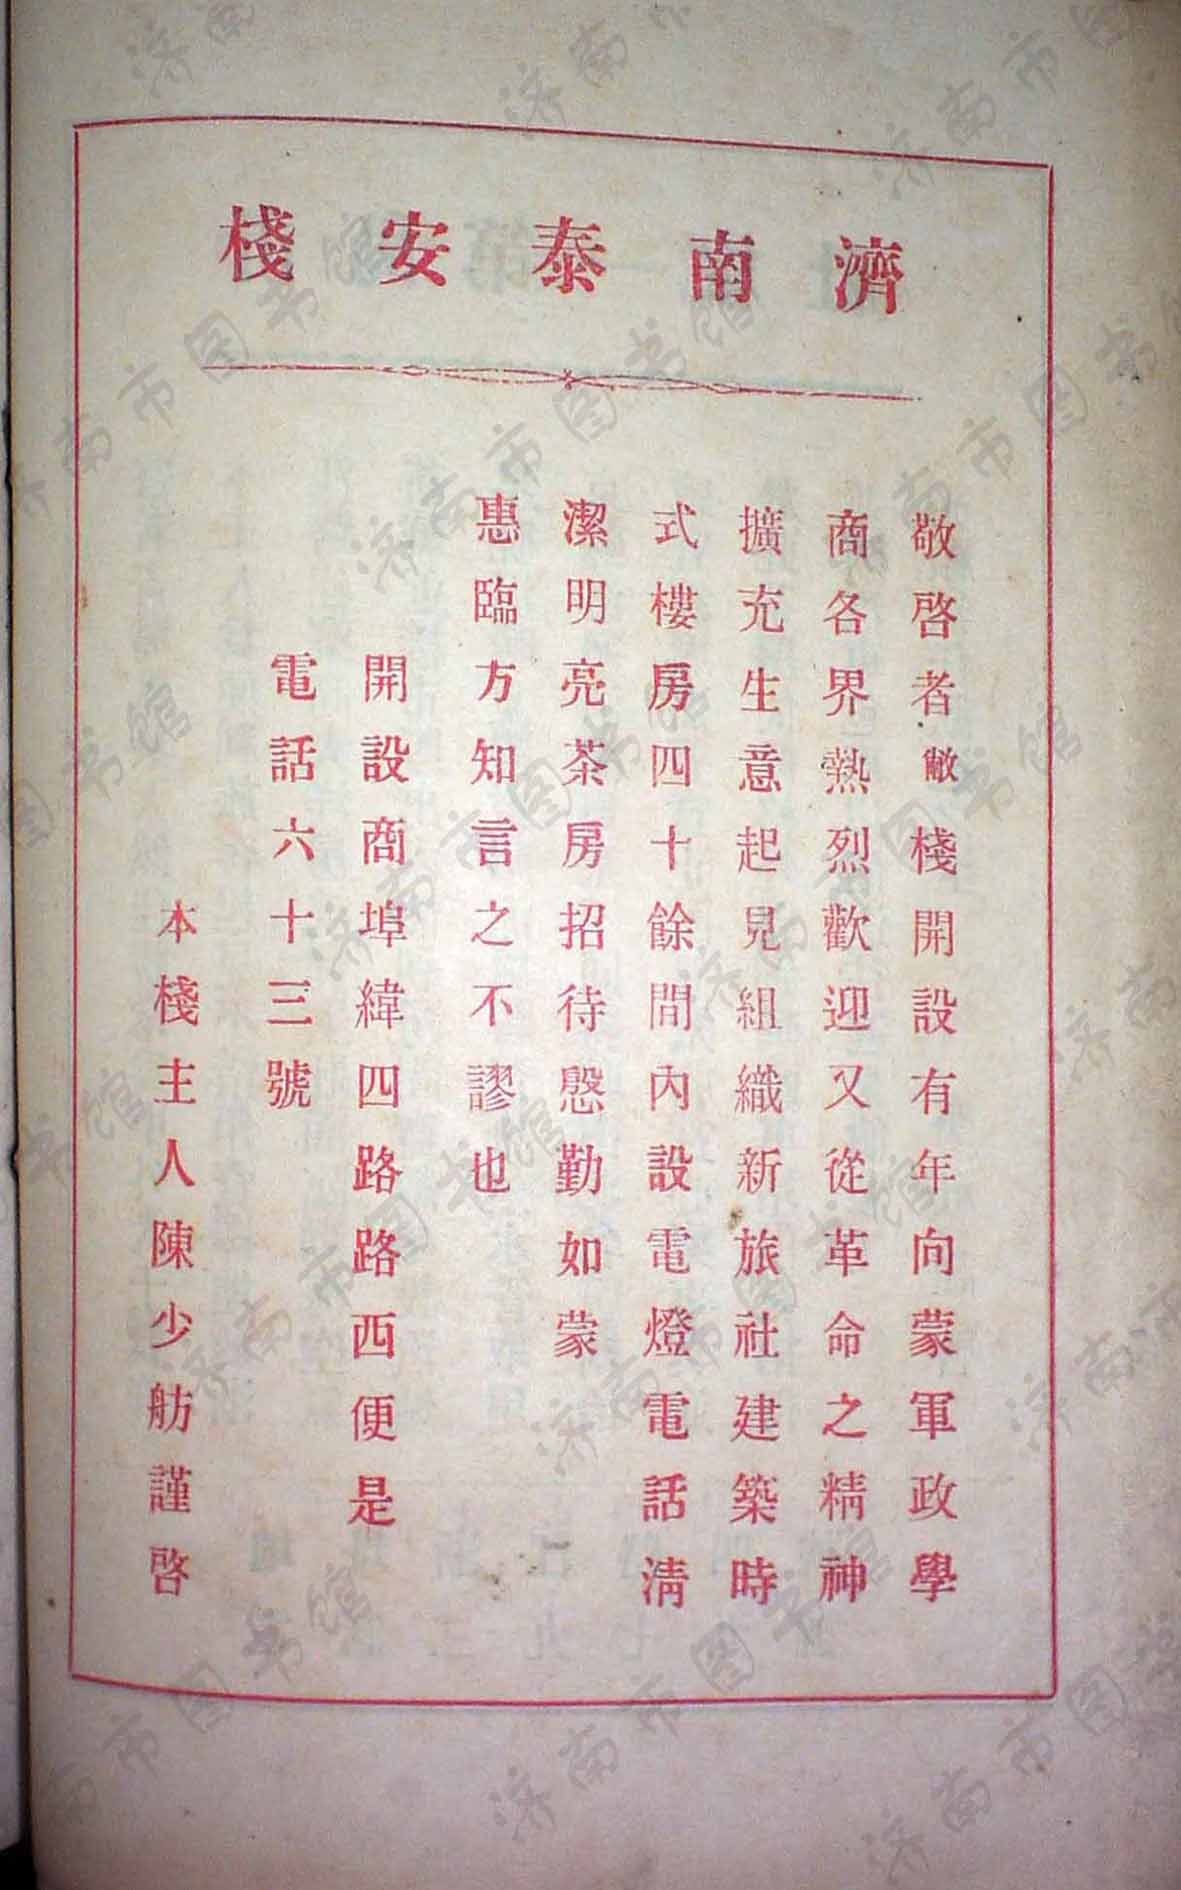 濟南泰安棧
敬啓者敝棧開設有年向蒙軍政學
商各界熱烈歡迎又從革命之精神
擴充生意起見組織新旅社建築時
式樓房四十餘間內設電燈電話清
潔明亮茶房招待慇勤如蒙
惠臨方知言之不謬也
開設商埠緯四路路西便是
電話六十三號
本棧主人陳少舫謹啓
济南市图书馆